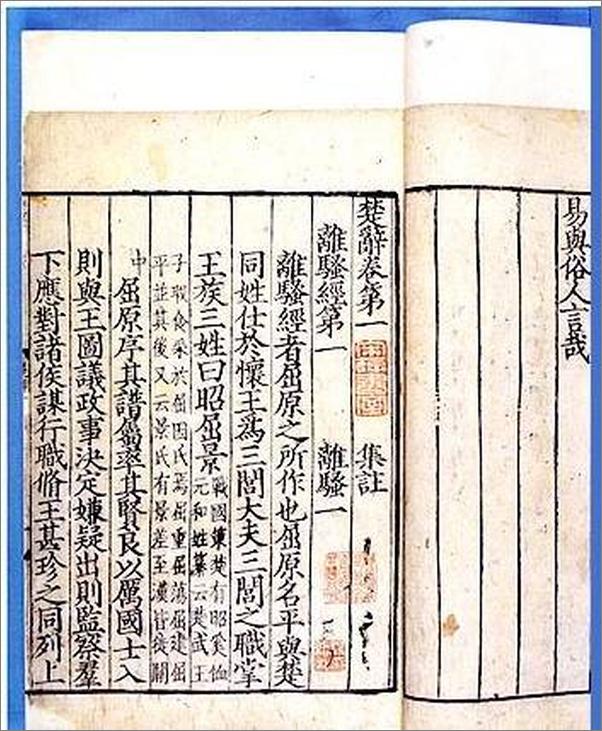 易與俗人言哉
楚辭卷第一 集註
離騷經第一 離騷一
離騷經者屈原之所作也屈原名平與楚
同姓仕於懷王爲三閭大夫三閭之職掌
王族三姓曰昭屈景
戰國策楚有昭奚恤
元和姓纂云楚武王
子瑕食采於屈因氏焉屈重屈蕩屈建屈
平並其後又云景氏有景差至漢皆徙關
中 屈原序其譜屬率其賢良以厲國士入
則與王圖議政事決定嫌疑出則監察羣
下應對諸侯謀行職脩王甚珍之同列上